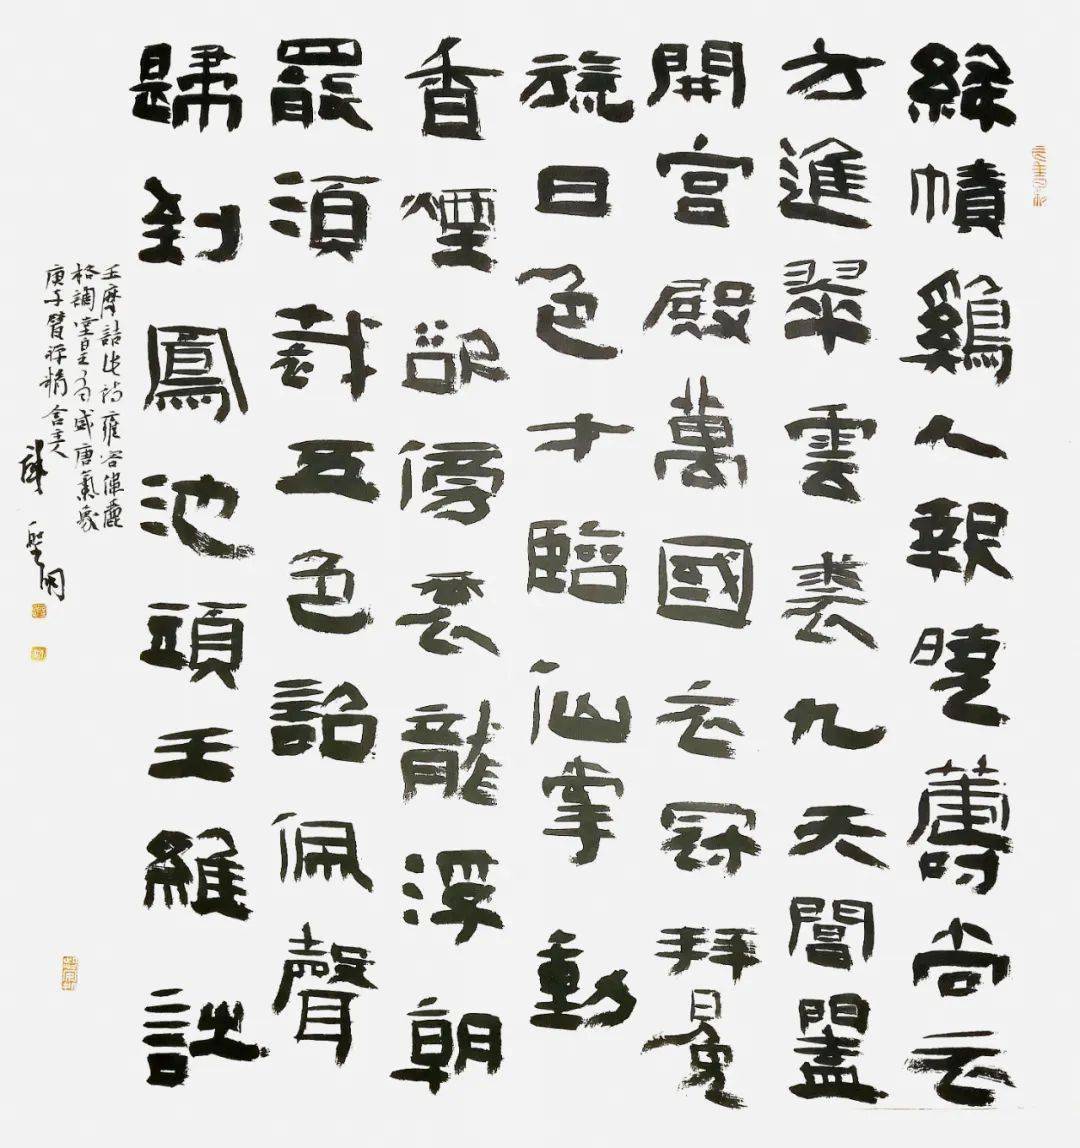 絳幘鷄人報曉籌尚衣
方進翠雲裘九天閶闔
開宮殿萬國衣冠拜冕
旒日色才臨仙掌動
香煙欲傍袞龍浮朝
罷須裁五色詔佩聲
歸到鳳池頭王維詩
王摩詰此詩雍容偉麗
格調堂皇乃盛唐氣象
庚子精舍主人
聖明